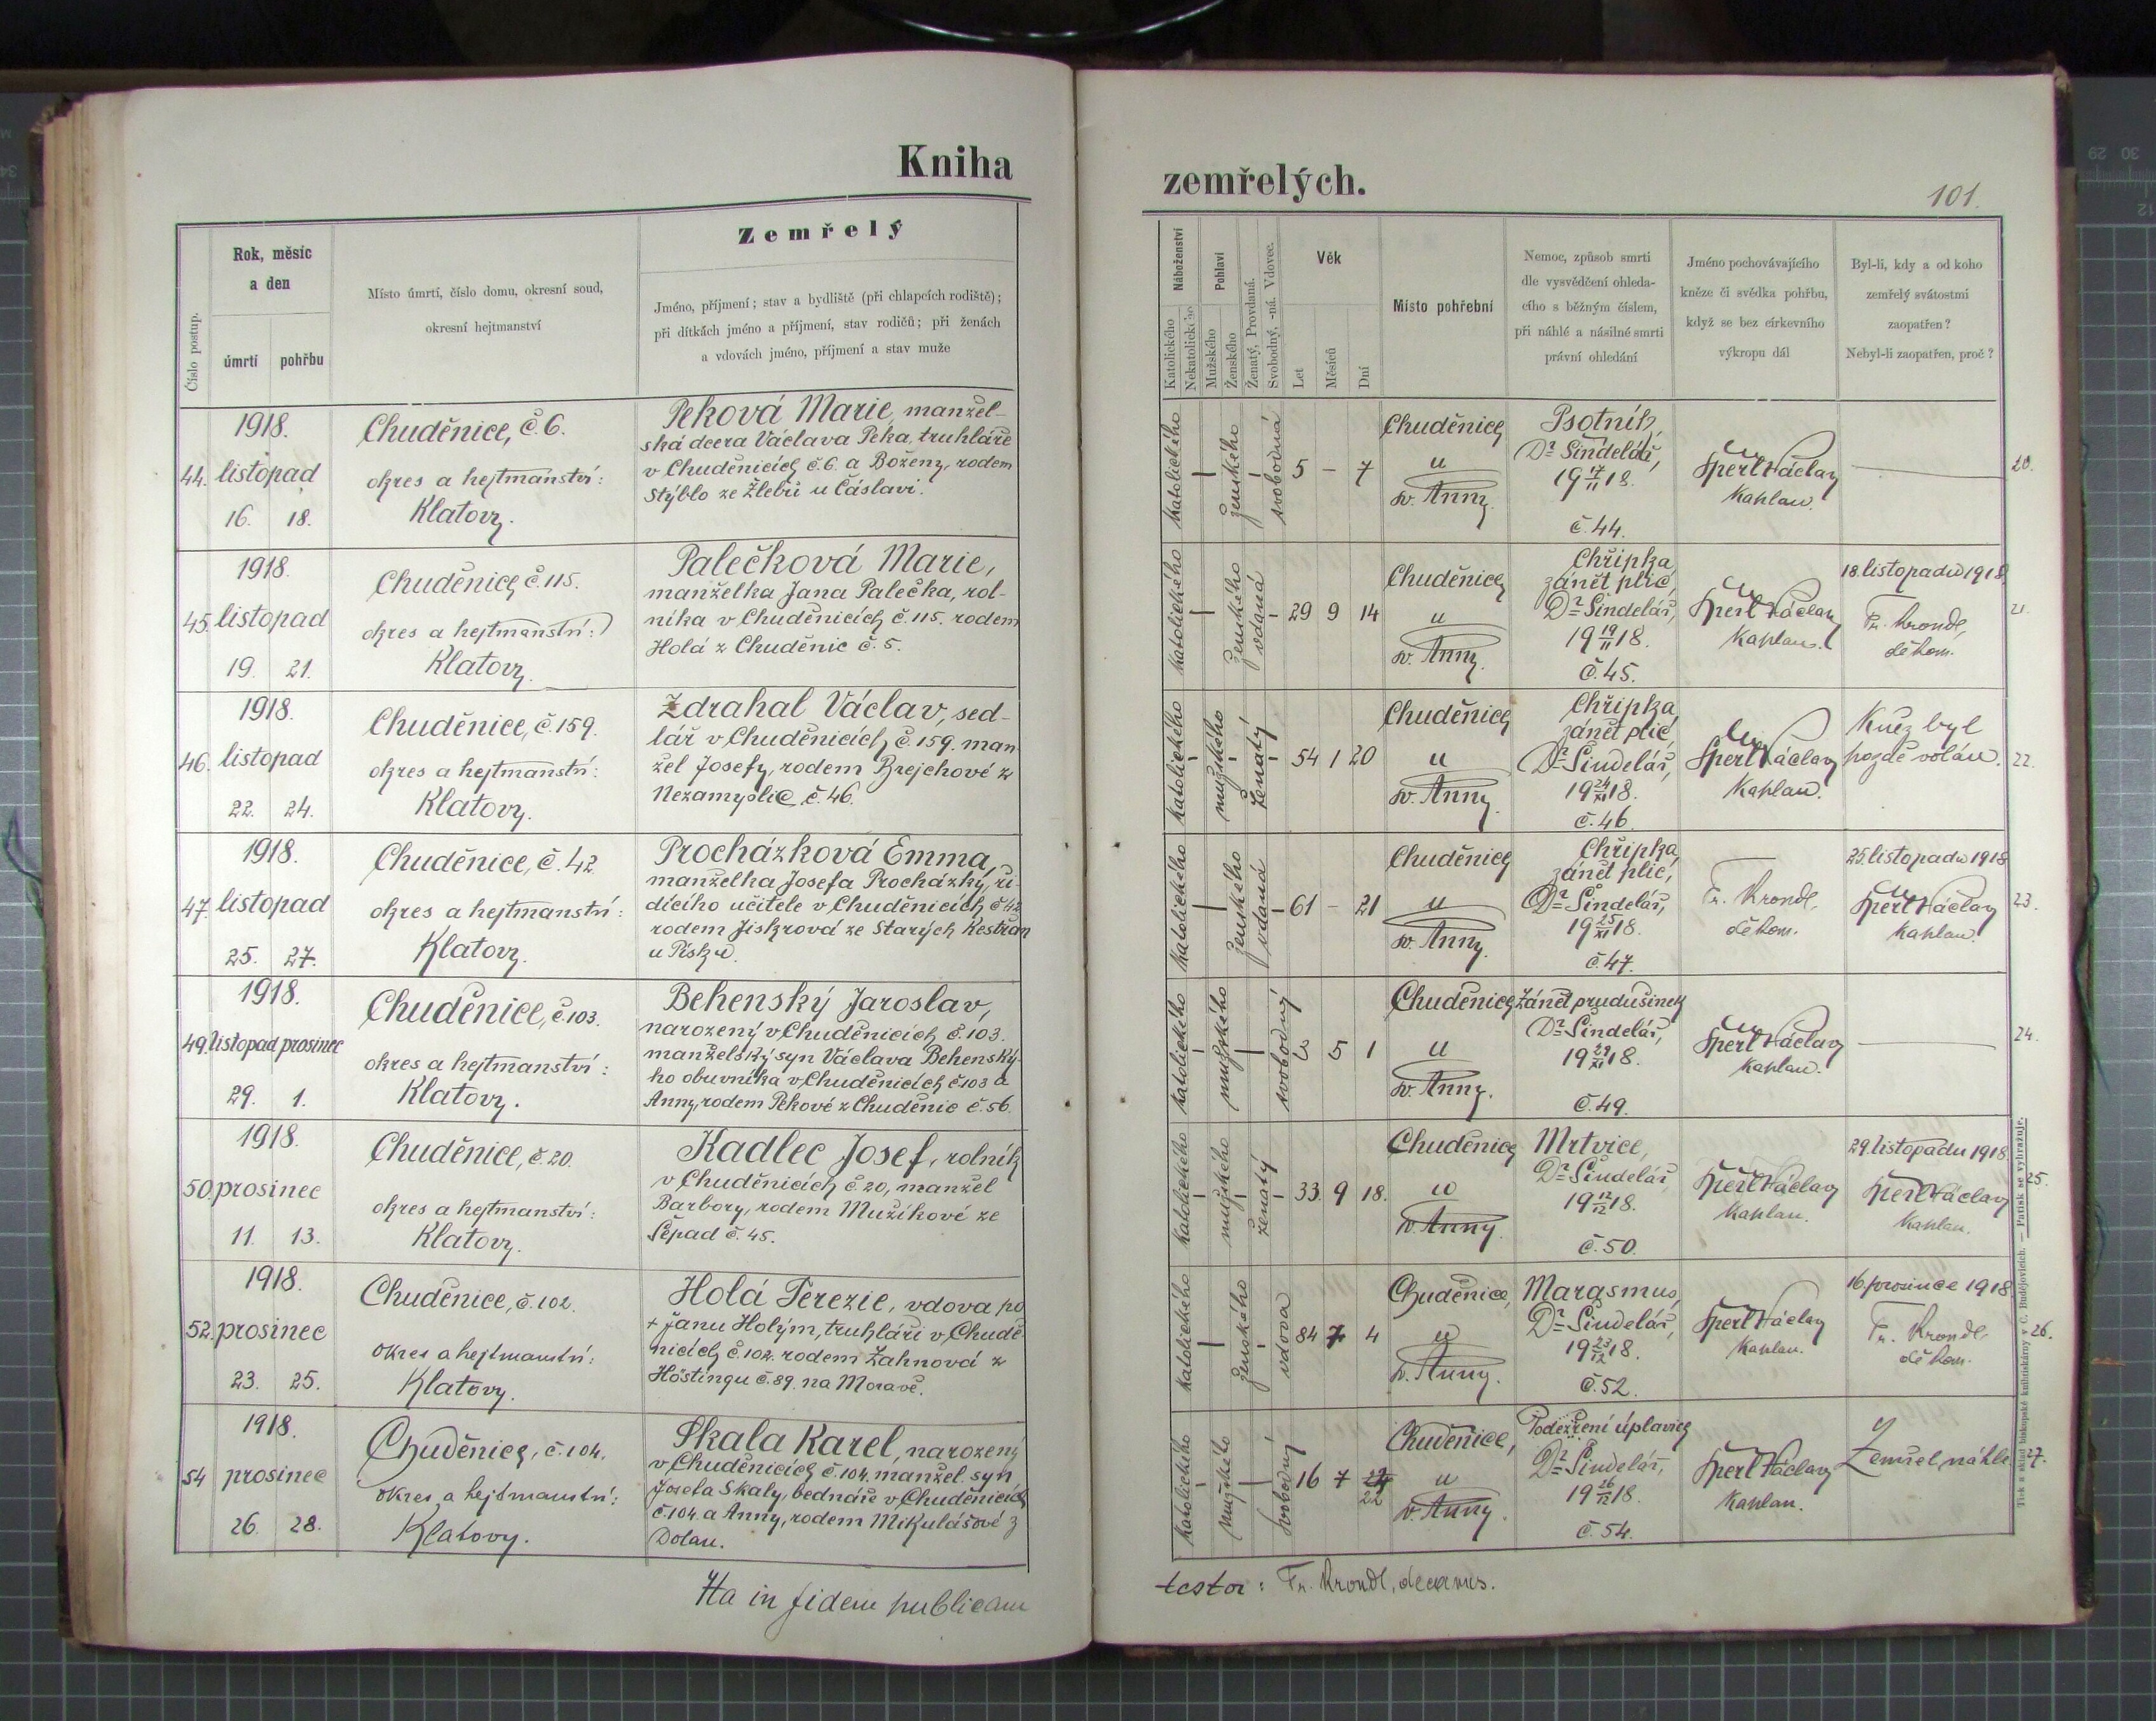 Kniha
zemřelých.
101.
Číslo postup.
Rok, měsíc
a den
úmrtí
pohřbu
Místo úmrtí, číslo domu, okresní soud,
okresní hejtmanství
Zemřelý
Jméno, příjmení; stav a bydliště (při chlapcích rodiště);
při dítkách jméno a příjmení, stav rodičů; při ženách
a vdovách jméno, příjmení a stav muže
Náboženství
Katolického
Nekatolického
Pohlaví
Mužského
Ženského
Ženatý, Provdaná.
Svobodný, -ná. Vdovec.
Věk
Let
Měsíců
Dní
Místo pohřební
Nemoc, způsob smrti
dle vysvědčení ohleda-
cího s běžným číslem,
při náhlé a násilné smrti
právní ohledání
Jméno pochovávajícího
kněze či svědka pohřbu,
když se bez církevního
výkropu dál
Byl-li, kdy a od koho
zemřelý svátostmi
zaopatřen?
Nebyl-li zaopatřen, proč?
44.
1918.
listopad
16. 18.
Chuděnice, č. 6.
okres a hejtmanství:
Klatovy.
Peková Marie, manžel-
ská dcera Václava Peka, truhláře
v Chuděnicích č. 6. a Boženy, rodem
Stýblo ze Žlebů u Čáslavi.
katolického
ženského
svobodná
5 - 7
Chuděnice
u
sv. Anny.
Psotník,
Dr Šindelář,
19 17/11 18.
č. 44.
Šperl Václav
kaplan.
20.
45.
1918.
listopad
19. 21.
Chuděnice č. 115.
okres a hejtmanství:
Klatovy.
Palečková Marie,
manželka Jana Palečka, rol-
níka v Chuděnicích č. 115. rodem
Holá z Chuděnic č. 5.
katolického
ženského
vdaná
29 9 14
Chuděnice
u
sv. Anny.
Chřipka
zánět plic,
Dr Šindelář,
19 19/11 18.
č. 45.
Šperl Václav
kaplan.
18. listopadu 1918
Fr. Krondl,
děkan.
21.
46.
1918.
listopad
22. 24.
Chuděnice, č. 159.
okres a hejtmanství:
Klatovy.
Zdrahal Václav, sed-
lář v Chuděnicích č. 159. man
žel Josefy, rodem Brejchové z
Nezamyslic č. 46.
katolického
mužského
ženatý
54 1 20
Chuděnice
u
sv. Anny.
Chřipka
zánět plic,
Dr Šindelář,
19 24/XI 18.
č. 46.
Šperl Václav
kaplan.
Kněz byl
pozdě volán.
22.
47.
1918.
listopad
25. 27.
Chuděnice, č. 42
okres a hejtmanství:
Klatovy.
Procházková Emma,
manželka Josefa Procházky, ří-
dícího učitele v Chuděnicích č 42
rodem Jiskrová ze Starých Kestřan
u Písku.
katolického
ženského
vdaná
61 - 21
Chuděnice
u
sv. Anny.
Chřipka
zánět plic,
Dr Šindelář,
19 25/XI 18.
č. 47.
Fr. Krondl,
děkan.
25. listopadu 1918
Šperl Václav
kaplan.
23.
49.
1918.
listopad prosinec
29. 1.
Chuděnice, č. 103.
okres a hejtmanství:
Klatovy.
Behenský Jaroslav,
narozený v Chuděnicích č. 103.
manželský syn Václava Behenský
ho obuvníka v Chuděnicích č. 103 a
Anny, rodem Pekové z Chuděnic č. 56.
katolického
mužského
svobodný
5 1
Chuděnice
u
sv. Anny.
Zánět prudušinek
Dr Šindelář,
19 29/XI 18.
č. 49.
Šperl Václav
kaplan.
24.
50.
1918.
prosinec
11. 13.
Chuděnice, č. 20.
okres a hejtmanství:
Klatovy.
Kadlec Josef, rolník
v Chuděnicích č. 20, manžel
Barbory, rodem Mužíkové ze
Sepad č. 45.
katolického
mužského
ženatý
33. 9 18.
Chuděnice
u
sv. Anny.
Mrtvice,
Dr Šindelář
19 12/12 18.
č. 50.
Šperl Václav
kaplan.
29. listopadu 1918
Šperl Václav
kaplan.
25.
52.
1918.
prosinec
23. 25.
Chuděnice, č. 102.
okres a hejtmanství:
Klatovy.
Holá Terezie, vdova po
+ Janu Holým, truhláři v Chudě-
nicích č. 102. rodem Zahnová z
Höstingu č. 89. na Moravě.
katolického
ženského
vdova
84 7 4
Chuděnice,
u
sv. Anny.
Marasmus,
Dr Šindelář,
19 23/12 18.
č. 52.
Šperl Václav
kaplan.
16. prosince 1918
Fr. Krondl
děkan.
26.
54
1918.
prosinec
26. 28.
Chuděnice, č. 104.
okres a hejtmanství:
Klatovy.
Skala Karel, narozený
v Chuděnicích č. 104. manžel. syn
Josefa Skaly, bednáře v Chuděnicích
č. 104. a Anny, rodem Mikulášové z
Dolan.
katolického
mužského
svobodný
16 7 22
Chuděnice,
u
sv. Anny.
Podezření úplavice
Dr Šindelář,
19 26/12 18.
č. 54.
Šperl Václav
kaplan.
Zemřel náhle
27.
Ita in fidem publicam
testor: Fr. Krondl, decanus.
Tisk a sklad biskupské knihtiskárny v Č. Budějovicích. — Patisk se vyhražuje.